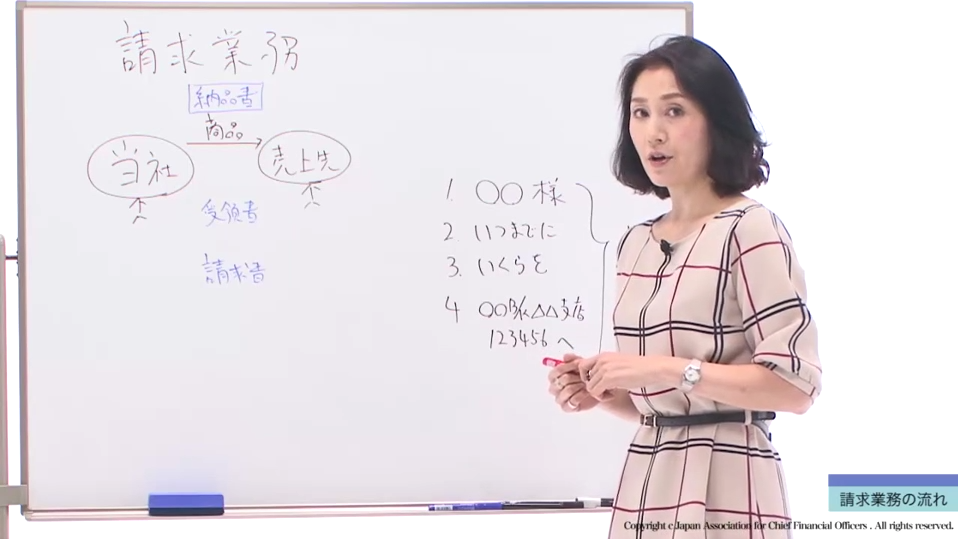 請求業務
納品書
商品
当社
売上先
受領書
請求書
1. 〇〇様
2. いつまでに
3. いくらを
4 〇〇BK△△支店
123456へ
請求業務の流れ
Copyright c Japan Association for Chief Financial Officers . All rights reserved.